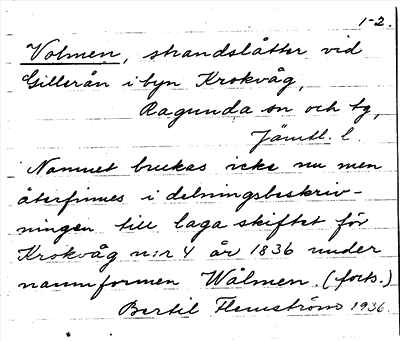 1-2.
Volmen, strandslåtter vid
Gillerån i byn Krokvåg,
Ragunda sn och tg,
Jämtl. l.
Namnet brukas icke nu men
återfinnes i delningsbeskriv-
ningen till laga skiftet för
Krokvåg n:r 4 år 1836 under
namnformen Wålmen. (forts.)
Bertil Flemström 1936.